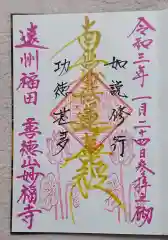 令和三年一月二十四日参拝之砌
如説修行
南無妙法蓮華経
功徳甚多
遠州福田
善徳山妙福寺